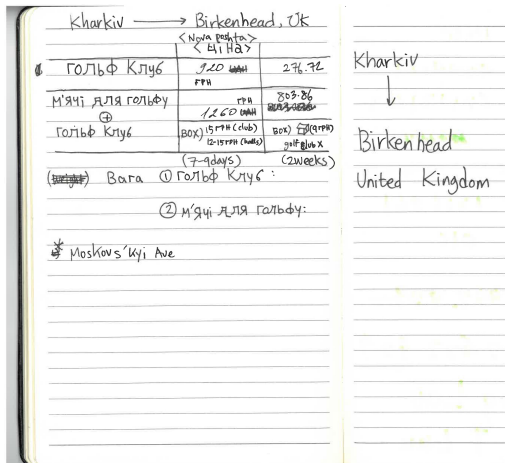 Kharkiv → Birkenhead, UK
<Nova Poshta>
<ЦіНа>
ГОЛЬФ КЛУБ 920 UAH ГРН 276.72
М'ЯЧІ ДЛЯ ГОЛЬФУ
⊕
ГОЛЬФ КЛУБ
ГРН
1260 UAH
803.86
BOX) 15ГРН(club)
12-15ГРН(balls)
BOX) (9ГРН)
golf club X
(7-9days) (2weeks)
Вага ① ГОЛЬФ КЛУБ :
② М'ЯЧІ ДЛЯ ГОЛЬФУ:
* Moskovs'kyi Ave
Kharkiv
↓
Birkenhead
United Kingdom